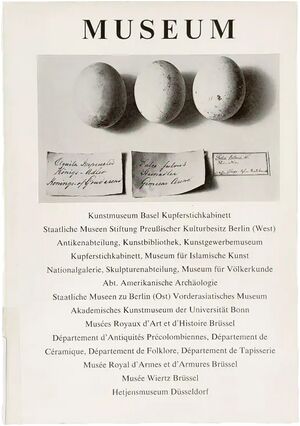 MUSEUM
Königs-Adler
Kunstmuseum Basel Kupferstichkabinett
Staatliche Museen Stiftung Preußischer Kulturbesitz Berlin (West)
Antikenabteilung, Kunstbibliothek, Kunstgewerbemuseum
Kupferstichkabinett, Museum für Islamische Kunst
Nationalgalerie, Skulpturenabteilung, Museum für Völkerkunde
Abt. Amerikanische Archäologie
Staatliche Museen zu Berlin (Ost) Vorderasiatisches Museum
Akademisches Kunstmuseum der Universität Bonn
Musées Royaux d'Art et d'Histoire Brüssel
Département d'Antiquités Précolombiennes, Département de
Céramique, Département de Folklore, Département de Tapisserie
Musée Royal d'Armes et d'Armures Brüssel
Musée Wiertz Brüssel
Hetjensmuseum Düsseldorf